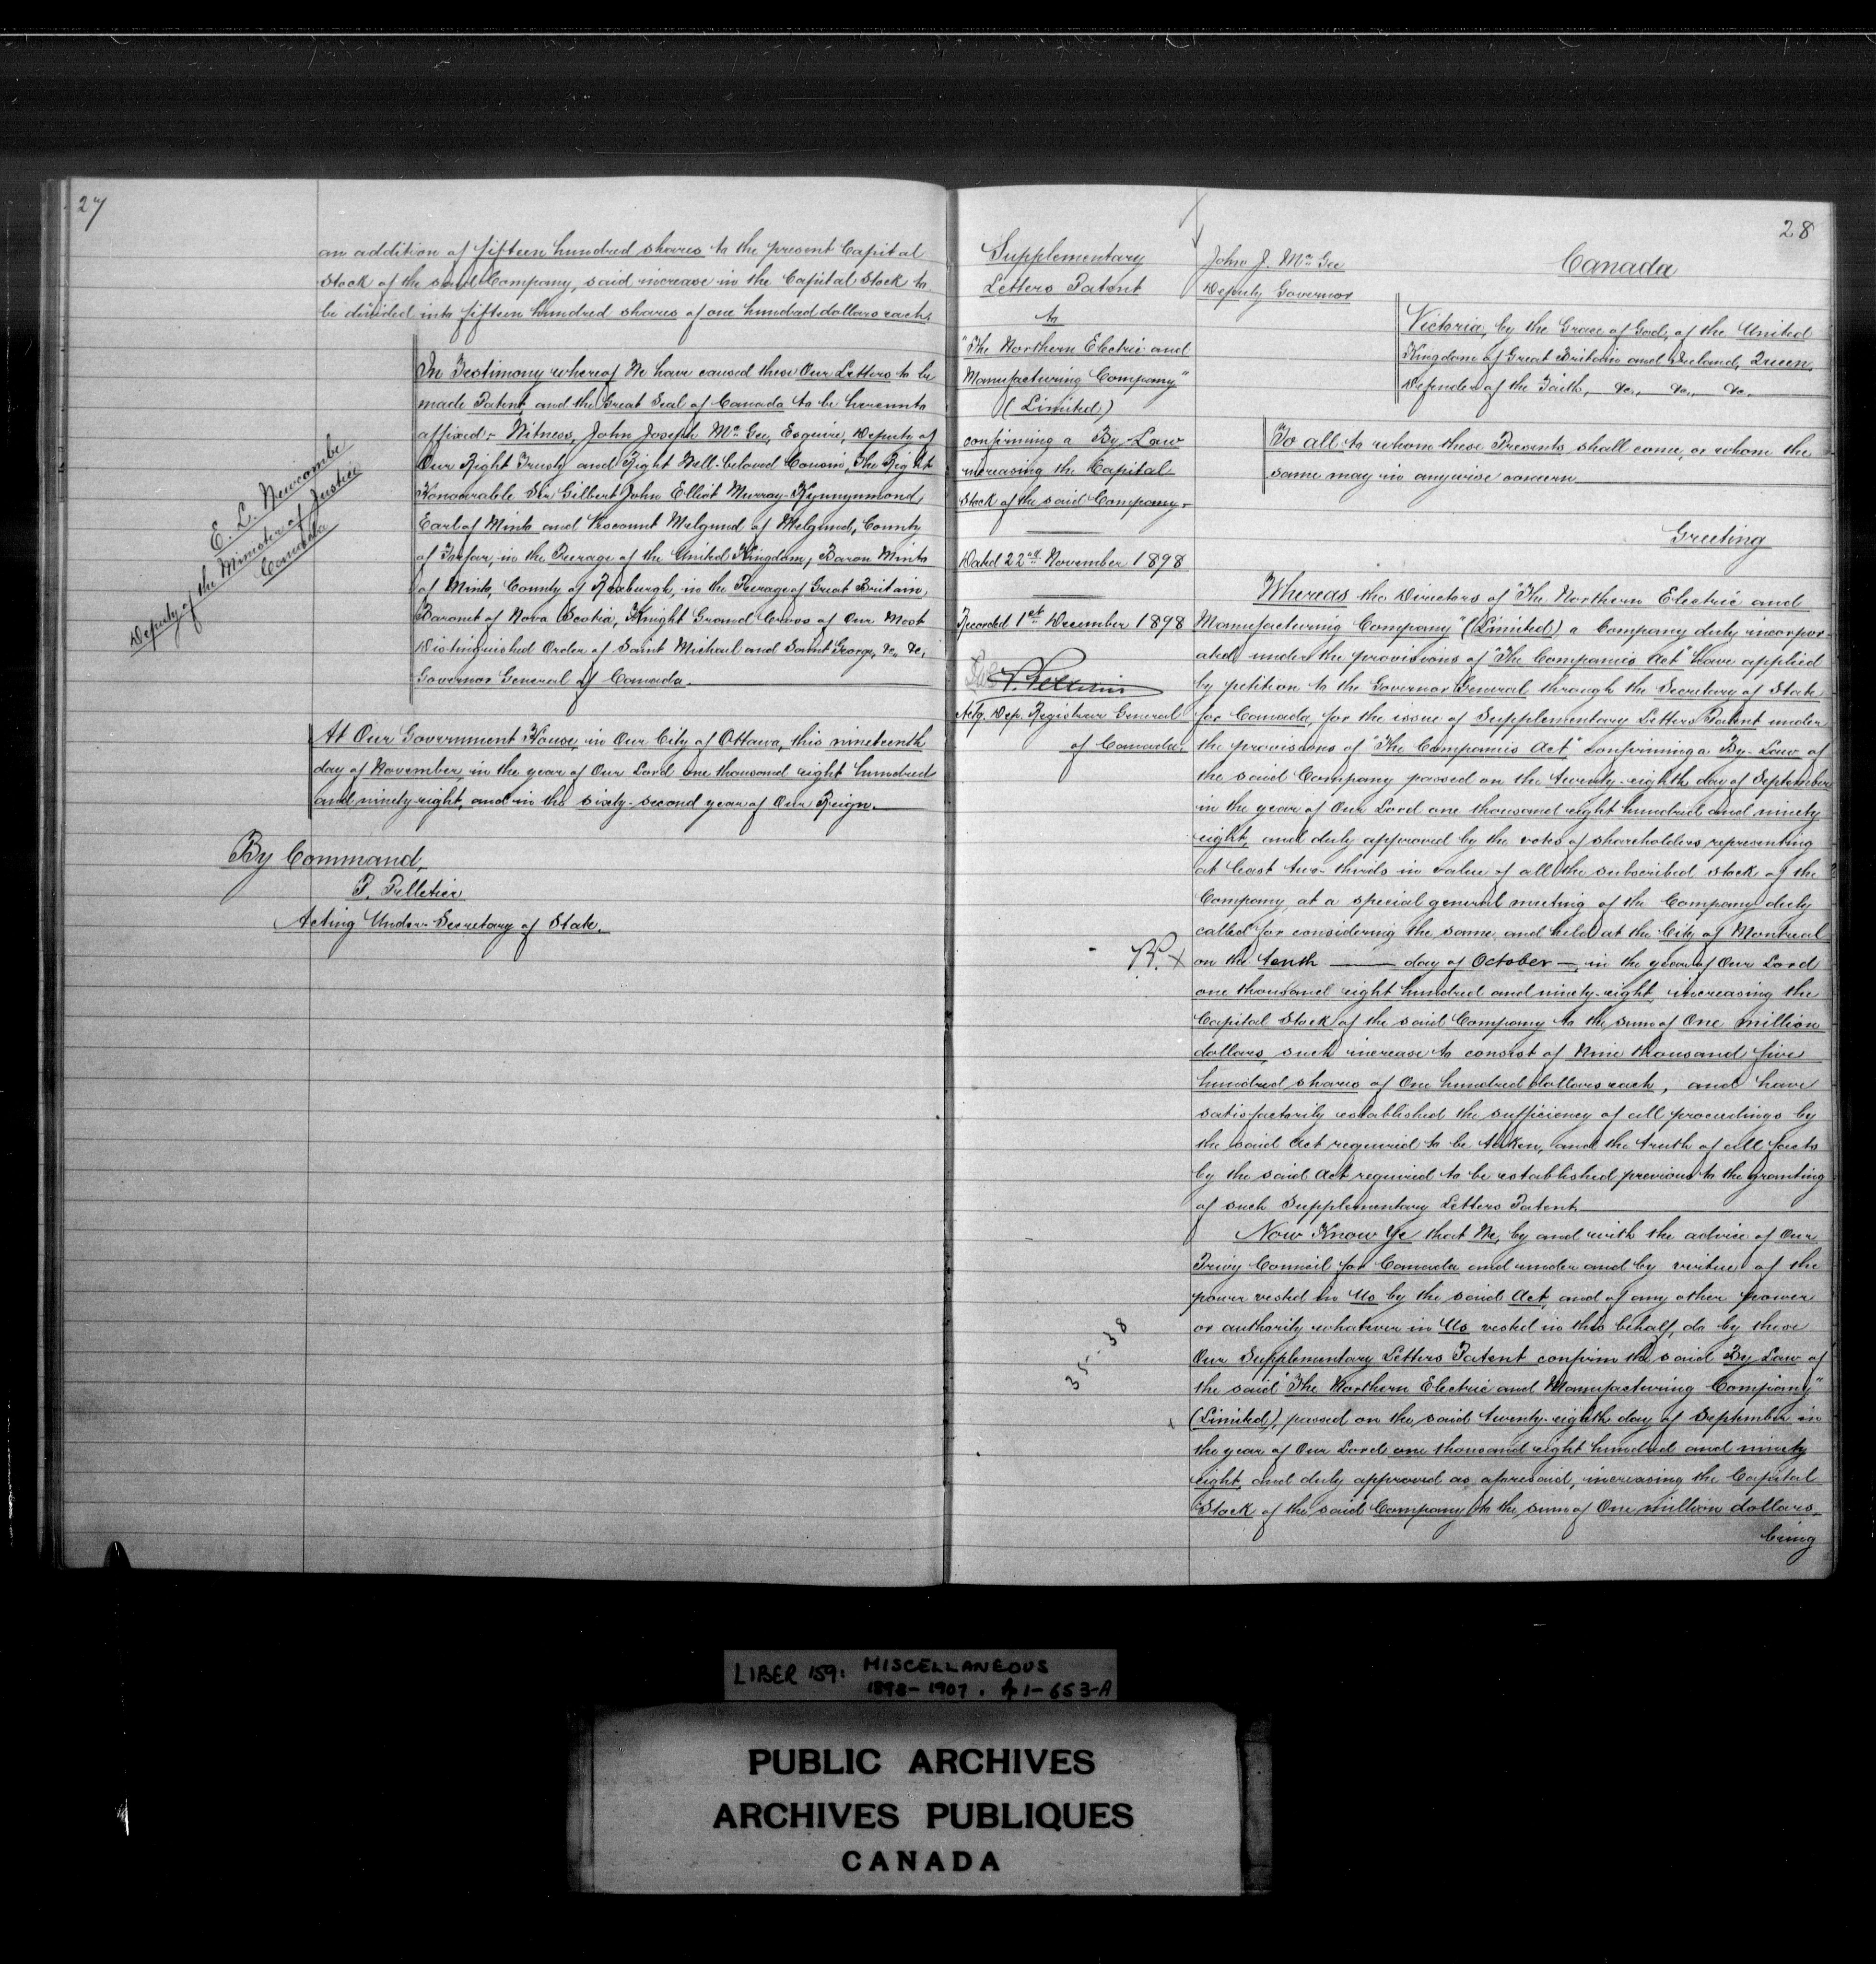 27
an addition of fifteen hundred shares to the present Capital
Stock of the said Company, said increase in the Capital Stock to
be divided into fifteen hundred shares of one hundred dollars each.
In Testimony whereof We have caused these Our Letters to be
made Patent, and the Great Seal of Canada to be hereunto
affixed:- Witness, John Joseph McGee, Esquire, Deputy of
Our Right Trusty and Right Well-beloved Cousin, The Right
Honourable Sir Gilbert John Elliot Murray-Kynnynmond,
Earl of Minto and Viscount Melgund of Melgund, County
of Forfar, in the Peerage of the United Kingdom, Baron Minto
of Minto, County of Roxburgh, in the Peerage of Great Britain,
Baronet of Nova Scotia, Knight Grand Cross of Our Most
Distinguished Order of Saint Michael and Saint George, &c, &c,
Governor General of Canada.
E. L. Newcombe
Deputy of the Minister of Justice
Canada
At Our Government House, in Our City of Ottawa, this nineteenth
day of November, in the year of Our Lord one thousand eight hundred
and ninety-eight, and in the sixty-second year of Our Reign.
By Command,
P. Pelletier
Acting Under-Secretary of State.
28
Supplementary
Letters Patent
to
"The Northern Electric and
Manufacturing Company"
(Limited)
confirming a By Law
increasing the Capital
Stock of the said Company.
Dated 22nd November 1898
Recorded 1st December 1898
P. Pelletier
Actg. Dep. Registrar General
of Canada.
John J. McGee
Deputy Governor
Canada
Victoria, by the Grace of God, of the United
Kingdom of Great Britain and Ireland, Queen,
Defender of the Faith, &c., &c., &c.
To all to whom these Presents shall come, or whom the
same may in anywise concern
Greeting
Whereas the Directors of "The Northern Electric and
Manufacturing Company" (Limited) a Company duly incorpor-
ated under the provisions of "The Companies Act" have applied
by petition to the Governor General through the Secretary of State
for Canada, for the issue of Supplementary Letters Patent under
the provisions of "The Companies Act" confirming a By-Law of
the said Company passed on the twenty-eighth day of September
in the year of Our Lord one thousand eight hundred and ninety
eight, and duly approved by the votes of shareholders representing
at least two-thirds in value of all the subscribed stock of the
Company, at a special general meeting of the Company duly
called for considering the same, and held at the City of Montreal
on the tenth — day of October — in the year of Our Lord
one thousand eight hundred and ninety-eight, increasing the
Capital Stock of the said Company to the sum of One million
dollars, such increase to consist of Nine thousand five
hundred shares of One hundred dollars each, and have
satisfactorily established the sufficiency of all proceedings by
the said Act required to be taken, and the truth of all facts
by the said Act required to be established previous to the granting
of such Supplementary Letters Patent
Now Know Ye that We, by and with the advice of Our
Privy Council for Canada and under and by virtue of the
power vested in Us by the said Act, and of any other power
or authority whatever in Us vested in this behalf, do by these
Our Supplementary Letters Patent confirm the said By Law of
the said "The Northern Electric and Manufacturing Company"
(Limited), passed on the said twenty-eighth day of September in
the year of Our Lord one thousand eight hundred and ninety
eight, and duly approved as aforesaid, increasing the Capital
Stock of the said Company to the sum of One million dollars,
being
35-38
LIBER 159: MISCELLANEOUS
1898-1907. pp 1-653-A
PUBLIC ARCHIVES
ARCHIVES PUBLIQUES
CANADA